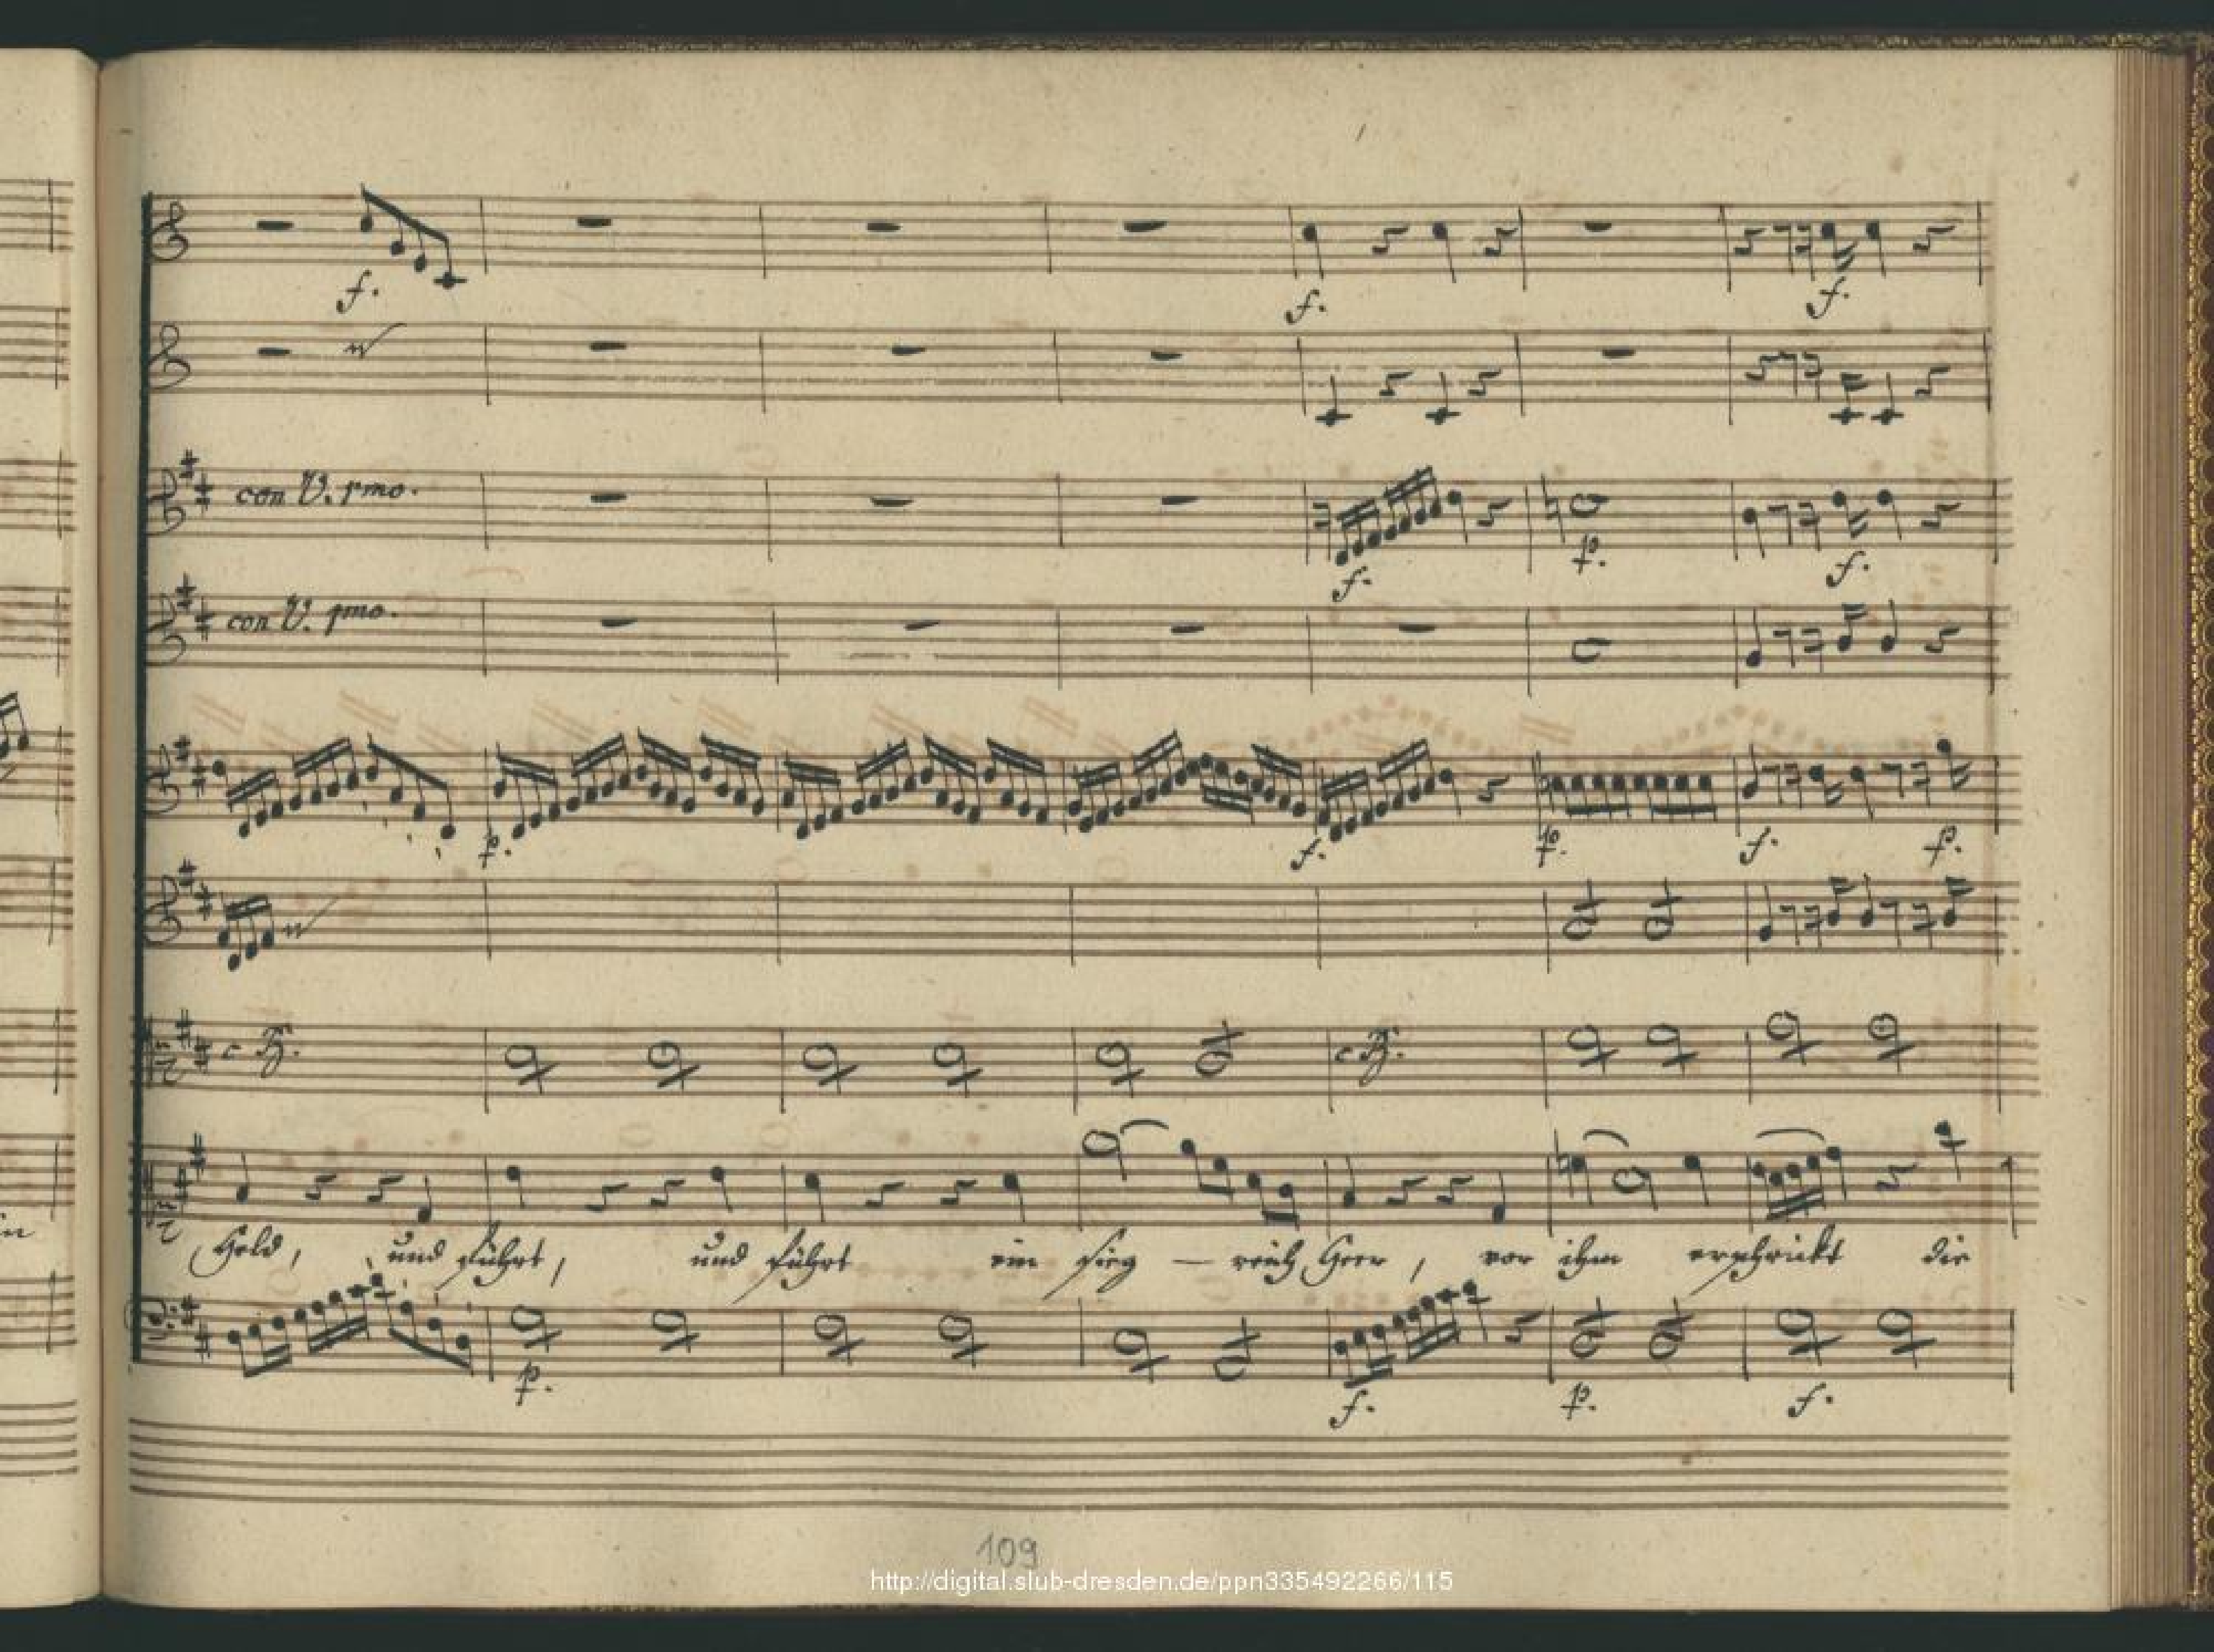 f. f. f.
con V. pmo. f. p. f.
con V. pmo.
p. f. p. f. p.
c B. c B.
Held, und führt, und führt ein sieg — reich Heer, vor ihm erschrickt die
p. f. p. f.
109
http://digital.slub-dresden.de/ppn335492266/115